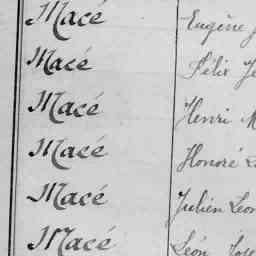 Macé Eugène
Macé Félix
Macé Henri
Macé Honoré
Macé Julien Leon
Macé Léon